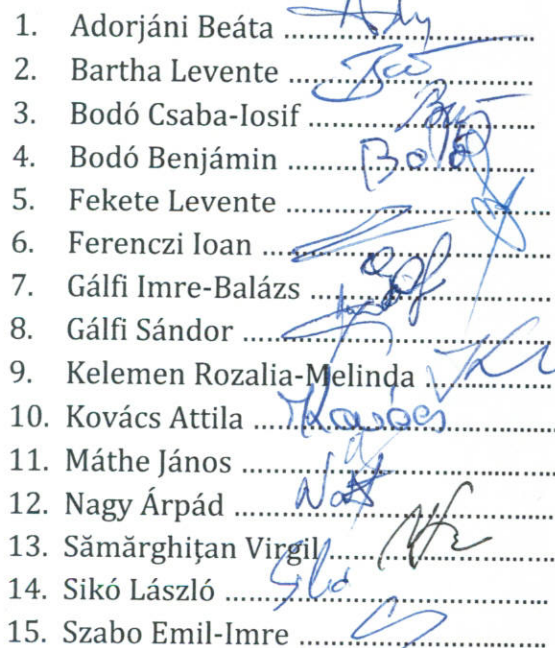 1. Adorjáni Beáta ..............................
2. Bartha Levente ..............................
3. Bodó Csaba-Iosif ..............................
4. Bodó Benjámin .............................. Bodó
5. Fekete Levente ..............................
6. Ferenczi Ioan ..............................
7. Gálfi Imre-Balázs ..............................
8. Gálfi Sándor ..............................
9. Kelemen Rozalia-Melinda ................
10. Kovács Attila .............................. Kovács
11. Máthe János ..............................
12. Nagy Árpád ..............................
13. Sămărghițan Virgil ..............................
14. Sikó László ..............................
15. Szabo Emil-Imre ..............................